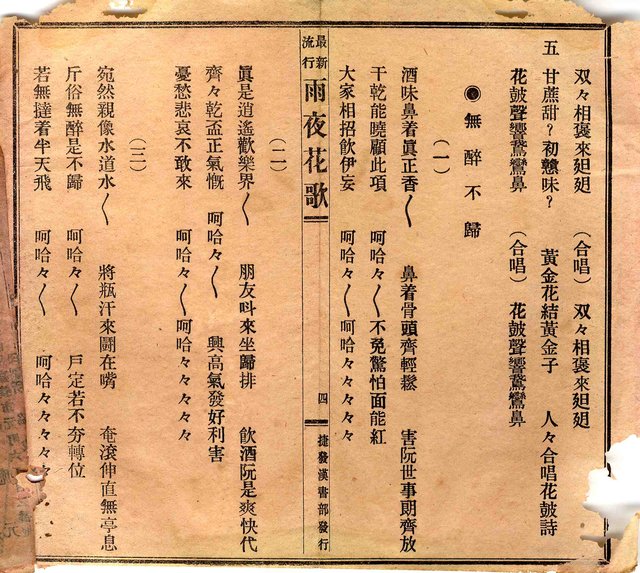 双々相褒來廻廻　(合唱)　双々相褒來廻廻
五　甘蔗甜？初戇味？　黃金花結黃金子　人々合唱花皷詩
花皷聲響鴛鸞鼻　(合唱)　花皷聲響鴛鸞鼻
無醉不歸
(一)
酒味鼻着眞正香〳〵　鼻着骨頭齊輕鬆　害阮世事朗齊放
干乾能曉顧此項　呵哈々〳〵不免驚怕面能紅
大家相招飲伊妄　呵哈々〳〵呵哈々々々々々
最新流行　雨夜花歌　四　捷發漢書部發行
(二)
眞是逍遙歡樂界〳〵　朋友呌來坐歸排　飲酒阮是爽快代
齊々乾盃正氣慨　呵哈々〳〵　興高氣發好利害
憂愁悲哀不敢來　呵哈々〳〵呵哈々々々々々
(三)
宛然親像水道水〳〵　將瓶汗來鬪在嘴　奄滾伸直無亭息
斤俗無醉是不歸　呵哈々〳〵　戶定若不夯轉位
若無撻着半天飛　呵哈々〳〵　呵哈々々々々